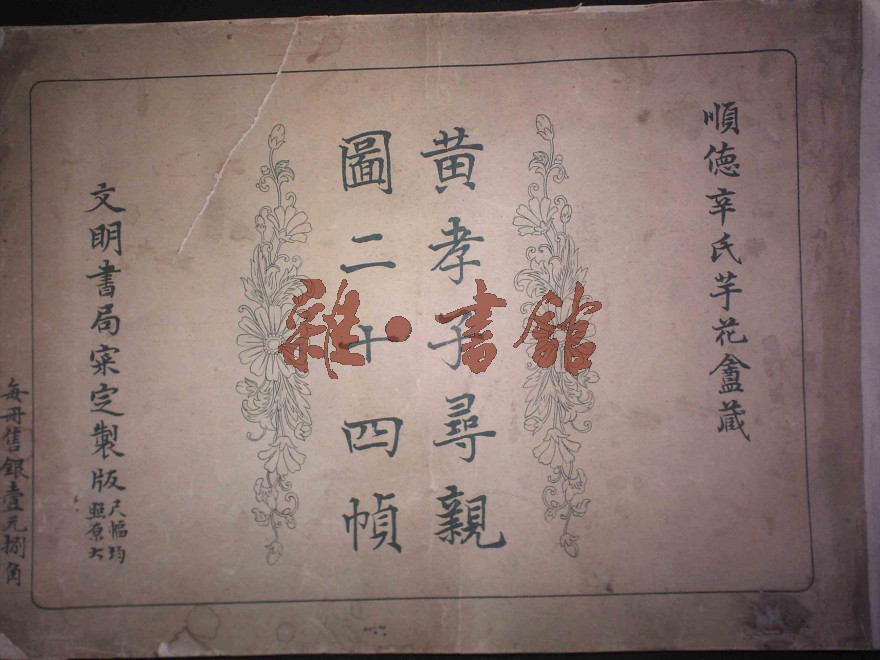 順德辛氏芋花盦藏
黃孝子尋親
圖二十四幀
文明書局審定製版
尺幅均
照原大
每冊售銀壹元捌角
雜·書館